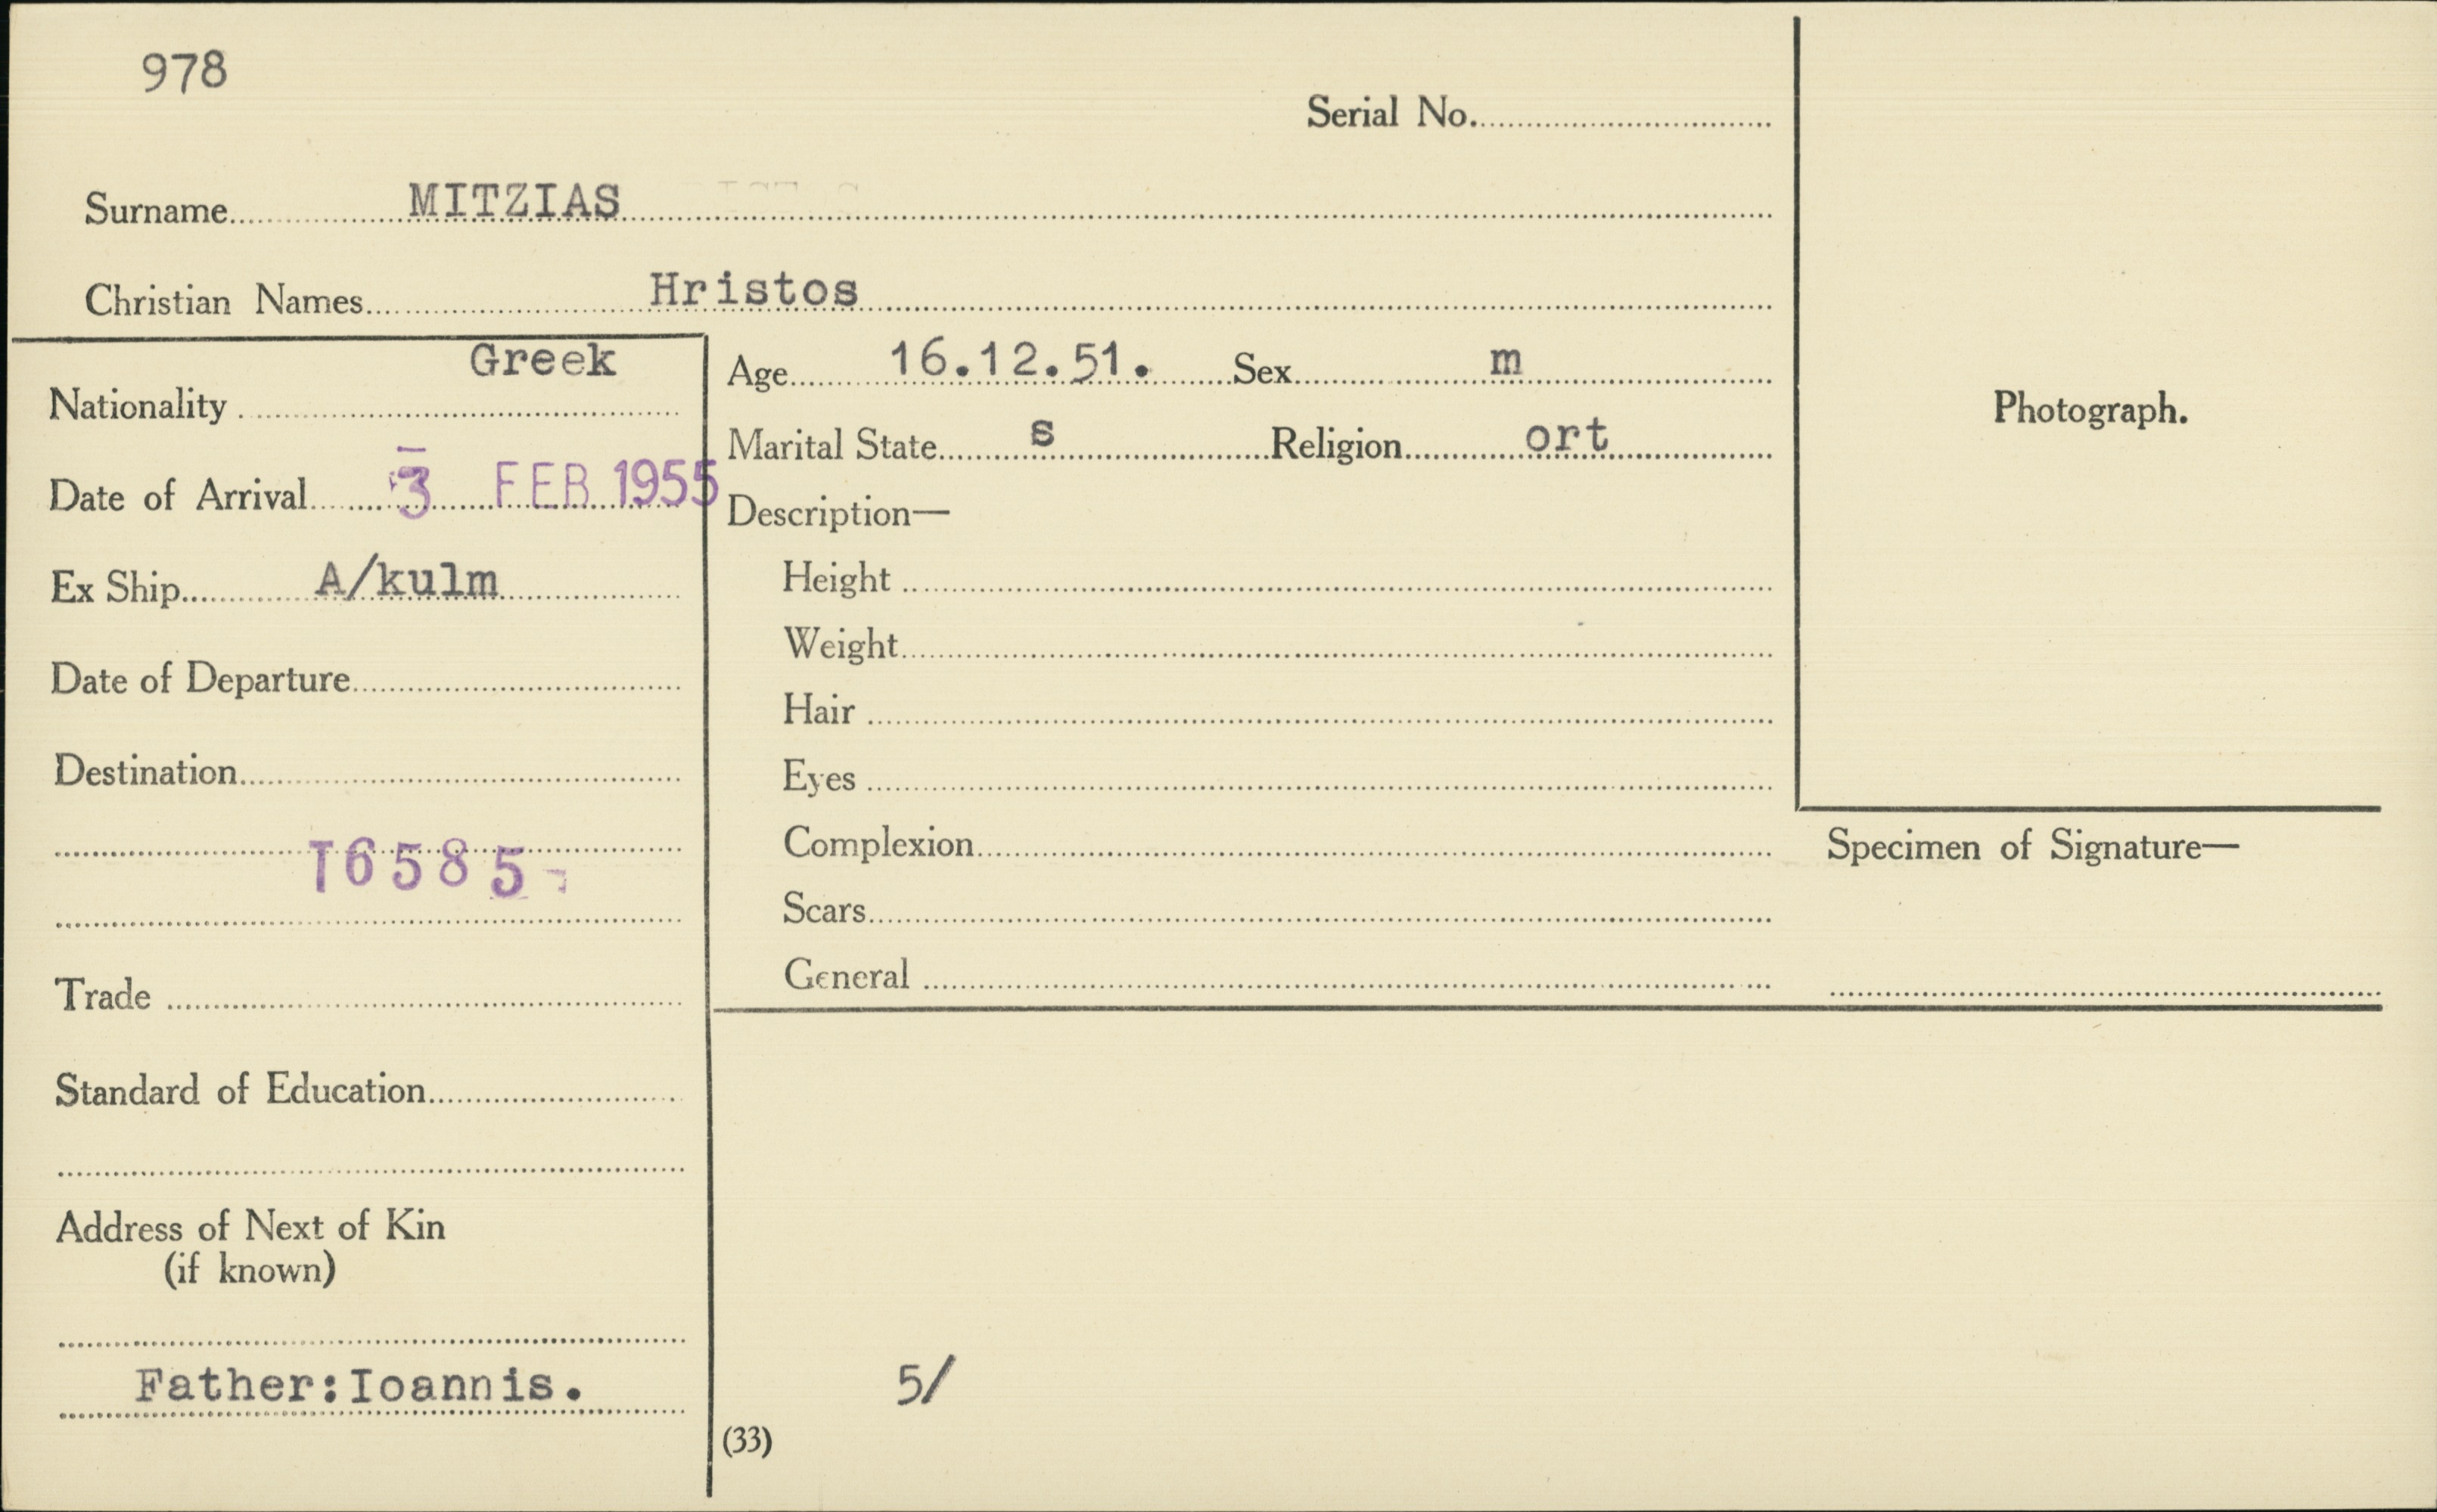 978
Serial No.
Surname MITZIAS
Christian Names Hristos
Nationality Greek
Date of Arrival 3 FEB 1955
Ex Ship A/kulm
Date of Departure
Destination
T6585
Trade
Standard of Education
Address of Next of Kin
(if known)
Father:Ioannis.
Age 16.12.51. Sex m
Marital State s Religion ort
Description—
Height
Weight
Hair
Eyes
Complexion
Scars
General
5/
(33)
Photograph.
Specimen of Signature—